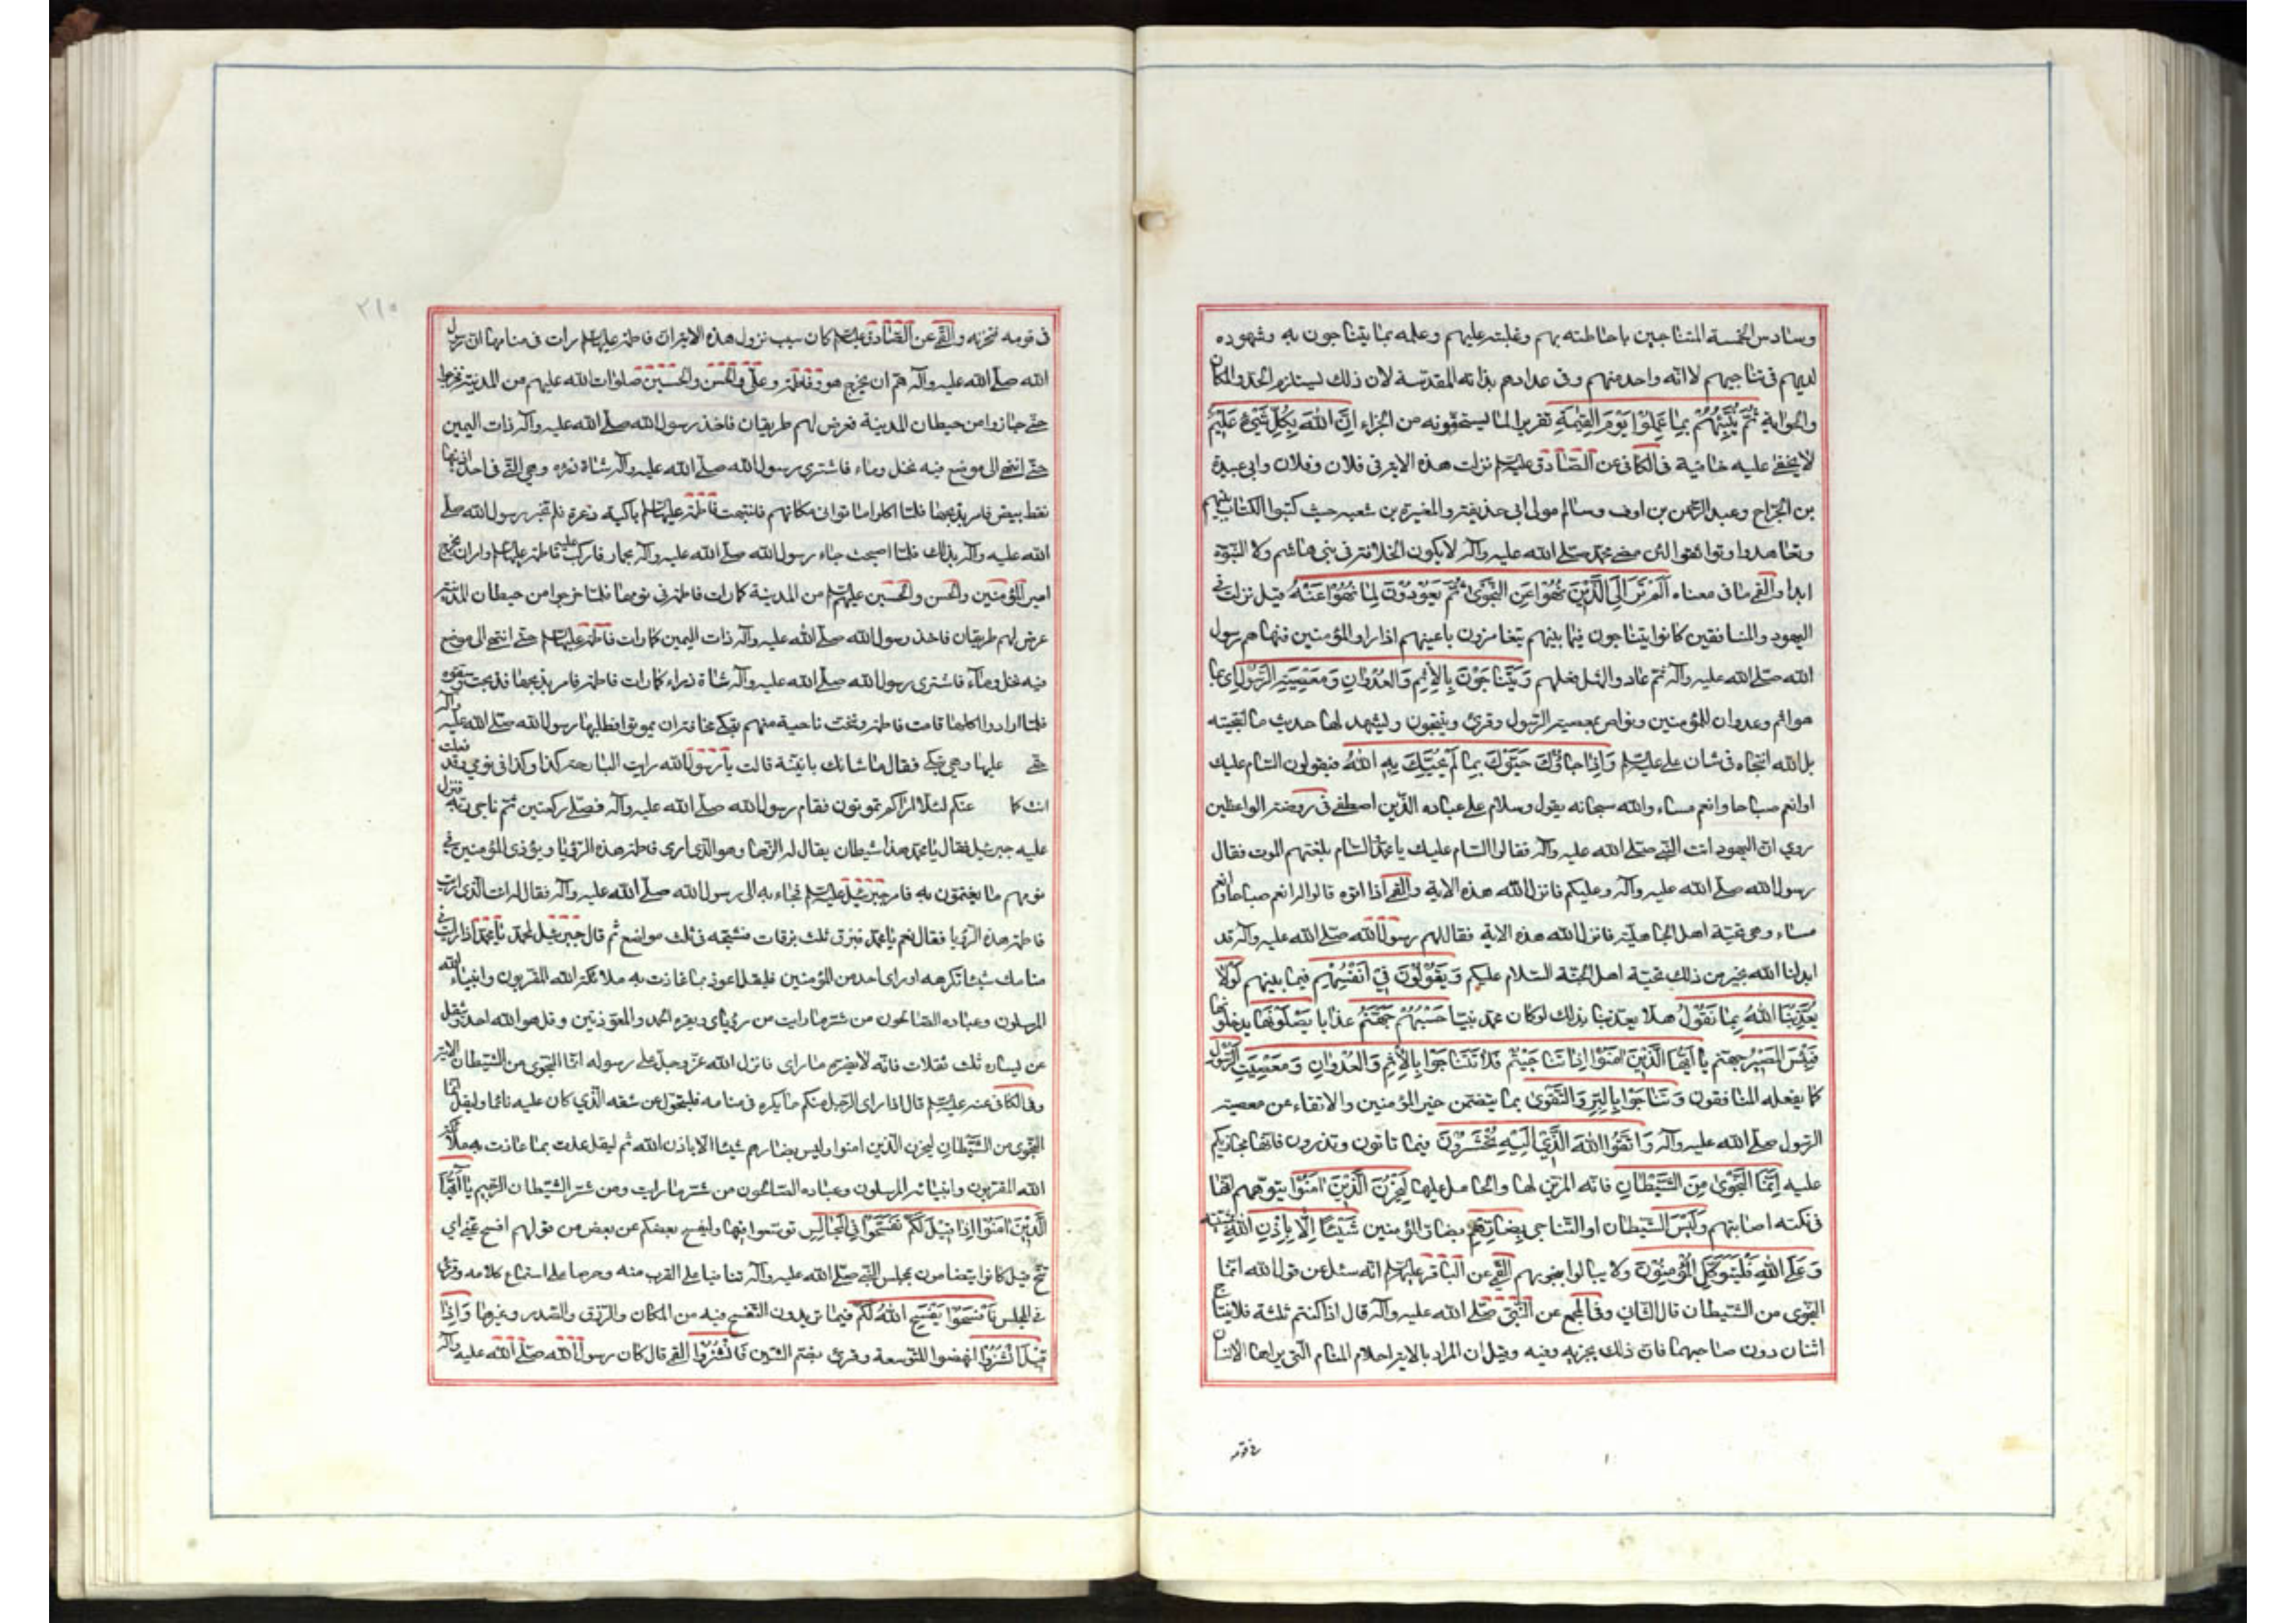 وسادس الخمسة المتناجين باحاطته بهم وغلبته عليهم وعلمه بما يتناجون به وشهوده
لديهم فى تناجيهم لا انه واحد منهم وفى عدادهم بذاته المقدسة لان ذلك ليستلزم الحد والمكان
والحواية ثُمَّ يُنَبِّئُهُمْ بِمَا عَمِلُوا يَوْمَ الْقِيٰمَةِ تقريرا لما يستحقونه من الجزاء اِنَّ اللهَ بِكُلِّ شَيْءٍ عَلِيمٌ
لا يخفى عليه خافية فى الكافى عن الصادق عليه السلم نزلت هذه الاية فى فلان وفلان وابى عبيدة
بن الجراح وعبد الرحمن بن اوف وسالم مولى ابى حذيفة والمغيرة بن شعبه حيث كتبوا الكتاب بينهم
وتعاهدوا وتوافقوا لئن مضى محمد صلى الله عليه وآله لا يكون الخلافة فى بنى هاشم ولا النبوة
ابدا والقمى ما فى معناه اَلَمْ تَرَ اِلَى الَّذِينَ نُهُوا عَنِ النَّجْوَىٰ ثُمَّ يَعُودُونَ لِمَا نُهُوا عَنْهُ قيل نزلت فى
اليهود والمنافقين كانوا يتناجون فيما بينهم يتغامزون باعينهم اذا راوا المؤمنين فنهاهم رسول
الله صلى الله عليه وآله ثم عادوا لمثل فعلهم وَيَتَنَاجَوْنَ بِالْاِثْمِ وَالْعُدْوَانِ وَمَعْصِيَتِ الرَّسُولِ اى بما
هو اثم وعدوان للمؤمنين وتواص بمعصية الرسول وقرئ وينتجون وليشهد لها حديث ما انتجيته
بل الله انتجاه فى شان على عليه السلم وَاِذَا جَاؤُكَ حَيَّوْكَ بِمَا لَمْ يُحَيِّكَ بِهِ اللهُ فيقولون السام عليك
او انعم صباحا وانعم مساء والله سبحانه يقول وسلام على عباده الذين اصطفى فى روضة الواعظين
روي ان اليهود اتت النبى صلى الله عليه وآله فقالوا السام عليك يا محمد والسام بلغتهم الموت فقال
رسول الله صلى الله عليه وآله وعليكم فانزل الله هذه الاية والقمى اذا اتوه قالوا له انعم صباحا وانعم
مساء وهى تحية اهل الجاهلية فانزل الله هذه الاية فقال لهم رسول الله صلى الله عليه وآله قد
ابدلنا الله بخير من ذلك تحية اهل الجنة السلام عليكم وَيَقُولُونَ فِي اَنْفُسِهِمْ فيما بينهم لَوْلَا
يُعَذِّبُنَا اللهُ بِمَا نَقُولُ هلا يعذبنا بذلك لو كان محمد نبيا حَسْبُهُمْ جَهَنَّمُ عذابا يَصْلَوْنَهَا يدخلونها
فَبِئْسَ الْمَصِيرُ جهنم يَا اَيُّهَا الَّذِينَ اٰمَنُوا اِذَا تَنَاجَيْتُمْ فَلَا تَتَنَاجَوْا بِالْاِثْمِ وَالْعُدْوَانِ وَمَعْصِيَتِ الرَّسُولِ
كما يفعله المنافقون وَتَنَاجَوْا بِالْبِرِّ وَالتَّقْوَىٰ بما يتضمن خير المؤمنين والاتقاء عن معصية
الرسول صلى الله عليه وآله وَاتَّقُوا اللهَ الَّذِي اِلَيْهِ تُحْشَرُونَ فيما تاتون وتذرون فانه مجازيكم
عليه اِنَّمَا النَّجْوَىٰ مِنَ الشَّيْطَانِ فانه المزين لها والحامل عليها لِيَحْزُنَ الَّذِينَ اٰمَنُوا بتوهمهم انها
فى نكبته اصابتهم وَلَيْسَ الشيطان او التناجى بِضَارِّهِمْ بضار المؤمنين شَيْئًا اِلَّا بِاِذْنِ اللهِ بمشيته
وَعَلَى اللهِ فَلْيَتَوَكَّلِ الْمُؤْمِنُونَ ولا يبالوا بنجويهم القمى عن الباقر عليه السلم انه سئل عن قول الله انما
النجوى من الشيطان قال الثانى وفى المجمع عن النبى صلى الله عليه وآله قال اذا كنتم ثلثة فلا يتناج
اثنان دون صاحبهما فان ذلك يحزنه وفيه وقيل ان المراد بالاية احلام المنام التى يراها الانسان
فى نومه
فى نومه تحزنه والقمى عن الصادق عليه السلم كان سبب نزول هذه الاية ان فاطمة عليها السلم رات فى منامها ان رسول
الله صلى الله عليه وآله هم ان يخرج هو وفاطمة وعلى والحسن والحسين صلوات الله عليهم من المدينة فخرجوا
حتى جازوا من حيطان المدينة فعرض لهم طريقان فاخذ رسول الله صلى الله عليه وآله ذات اليمين
حتى انتهى الى موضع فيه نخل وماء فاشترى رسول الله صلى الله عليه وآله شاة ذرء وهى التى فى احد اذنيها
نقط بيض فامر بذبحها فلما اكلوا ماتوا فى مكانهم فانتبهت فاطمة عليها السلم باكية ذعرة فلم تخبر رسول الله صلى
الله عليه وآله بذلك فلما اصبحت جاء رسول الله صلى الله عليه وآله بحمار فاركب عليه فاطمة عليها السلم وامر ان يخرج
امير المؤمنين والحسن والحسين عليهم السلم من المدينة كما رات فاطمة فى نومها فلما خرجوا من حيطان المدينة
عرض لهم طريقان فاخذ رسول الله صلى الله عليه وآله ذات اليمين كما رات فاطمة عليها السلم حتى انتهى الى موضع
فيه نخل وماء فاشترى رسول الله صلى الله عليه وآله شاة ذراء كما رات فاطمة فامر بذبحها فذبحت وشويت
فلما ارادوا اكلها قامت فاطمة وتنحت ناحية منهم تبكى مخافة ان يموتوا فطلبها رسول الله صلى الله عليه وآله
حتى عليها وهى تبكى فقال ما شانك يا بنية قالت يا رسول الله رايت البارحة كذا وكذا فى نومى وقد فعلت
انت كما عنكم لئلا اراكم تموتون فقام رسول الله صلى الله عليه وآله فصلى ركعتين ثم ناجى ربه فنزل
عليه جبرئيل فقال يا محمد هذا شيطان يقال له الرها وهو الذى ارى فاطمة هذه الرؤيا ويؤذى المؤمنين فى
نومهم ما يغتمون به فامر جبرئيل عليه السلم فجاء به الى رسول الله صلى الله عليه وآله فقال له انت الذى اريت
فاطمة هذه الرؤيا فقال نعم يا محمد فبزق ثلث بزقات فشجه فى ثلث مواضع ثم قال جبرئيل لمحمد يا محمد اذا رايت فى
منامك شيئا تكرهه او راى احد من المؤمنين فليقل اعوذ بما عاذت به ملائكة الله المقربون وانبياء الله
المرسلون وعباده الصالحون من شر ما رايت من رؤياى ويقرء الحمد والمعوذتين وقل هو الله احد ويتفل
عن يساره ثلث تفلات فانه لا يضره ما راى فانزل الله عز وجل على رسوله انما النجوى من الشيطان الاية
وفى الكافى عنه عليه السلم قال اذا راى الرجل منكم ما يكره فى منامه فليتحول عن شقه الذي كان عليه نائما وليقل انما
النجوى من الشيطان ليحزن الذين امنوا وليس بضارهم شيئا الا باذن الله ثم ليقل عذت بما عاذت به ملائكة
الله المقربون وانبيائه المرسلون وعباده الصالحون من شر ما رايت ومن شر الشيطان الرجيم يَا اَيُّهَا
الَّذِينَ اٰمَنُوا اِذَا قِيلَ لَكُمْ تَفَسَّحُوا فِي الْمَجَالِسِ توسعوا فيها وليفسح بعضكم عن بعض من قولهم افسح عنى اى
تنح قيل كانوا يتضامون بمجلس النبى صلى الله عليه وآله تنافسا على القرب منه وحرصا على استماع كلامه وقرئ
فى المجلس فَافْسَحُوا يَفْسَحِ اللهُ لَكُمْ فيما تريدون التفسح فيه من المكان والرزق والصدر وغيرها وَاِذَا
قِيلَ انْشُزُوا انهضوا للتوسعة وقرئ بضم الشين فَانْشُزُوا القمى قال كان رسول الله صلى الله عليه وآله
۲۱۵